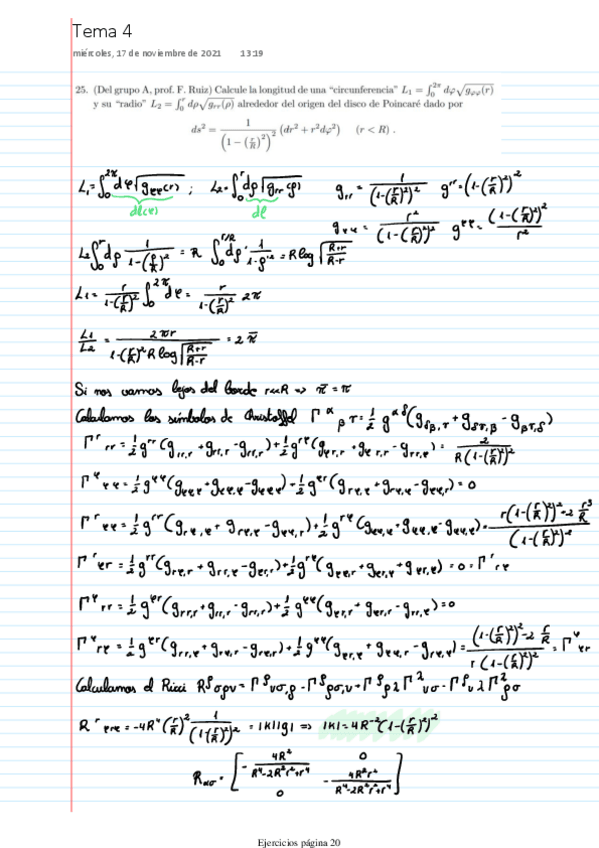 Tema 4
miércoles, 17 de noviembre de 2021 13:19
25. (Del grupo A, prof. F. Ruiz) Calcule la longitud de una “circunferencia” L₁ = ∫₀^{2π} dφ√(g_φφ(r))
y su “radio” L₂ = ∫₀^r dρ√(g_rr(ρ)) alrededor del origen del disco de Poincaré dado por
ds² = 1/(1 − (r/R)²)² (dr² + r²dφ²) (r < R) .
L₁ = ∫₀^{2π} dφ√(g_φφ(r)) ; L₂ = ∫₀^r dρ√(g_rr(ρ)) g_rr = 1/(1-(r/R)²)² g^rr = (1-(r/R)²)²
dl(φ) dl
g_φφ = r²/(1-(r/R)²)² g^φφ = (1-(r/R)²)²/r²
L₂ = ∫₀^r dρ 1/(1-(ρ/R)²) = R ∫₀^{r/R} dρ' 1/(1-ρ'²) = R log √((R+r)/(R-r))
L₁ = r/(1-(r/R)²) ∫₀^{2π} dφ = r/(1-(r/R)²) 2π
L₁/L₂ = 2πr/(1-(r/R)² R log √((R+r)/(R-r))) = 2 π̄
Si nos vamos lejos del borde r≪R ⇒ π̄ = π
Calculamos los símbolos de Christoffel Γ^α_βτ = ½ g^αδ (g_δβ,τ + g_δτ,β - g_βτ,δ)
Γ^r_rr = ½ g^rr (g_rr,r + g_rr,r - g_rr,r) + ½ g^rφ (g_φr,r + g_φr,r - g_rr,φ) = 2/(R(1-(r/R)²)²)
Γ^φ_φφ = ½ g^φφ (g_φφ,φ + g_φφ,φ - g_φφ,φ) + ½ g^φr (g_rφ,φ + g_rφ,φ - g_φφ,r) = 0
Γ^r_φφ = ½ g^rr (g_rφ,φ + g_rφ,φ - g_φφ,r) + ½ g^rφ (g_φφ,φ + g_φφ,φ - g_φφ,φ) =
Γ^r_φr = ½ g^rr (g_rφ,r + g_rr,φ - g_φr,r) + ½ g^rφ (g_φφ,r + g_φr,φ + g_φr,φ) = 0 = Γ^r_rφ
Γ^φ_rr = ½ g^φr (g_rr,r + g_rr,r - g_rr,r) + ½ g^φφ (g_φr,r + g_φr,r - g_rr,φ) = 0
Γ^φ_rφ = ½ g^φr (g_rr,φ + g_rφ,r - g_rφ,r) + ½ g^φφ (g_φr,φ + g_φφ,r - g_rφ,φ) = ((1-(r/R)²)² - 2 r/R)/(r(1-(r/R)²)²) = Γ^φ_φr
Calculamos el Ricci R^ρ_σμν = Γ^ρ_νσ,ρ - Γ^ρ_ρσ,ν + Γ^ρ_ρλ Γ^λ_νσ - Γ^ρ_νλ Γ^λ_ρσ
R^r_φrφ = -4R⁴ (r/R)² 1/(1-(r/R)²)² = |K||g| ⇒ |K| = 4R⁻² (1-(r/R)²)²
R_ασ = [ -4R²/(R⁴-2R²r²+r⁴) 0
0 -4R²r²/(R⁴-2R²r²+r⁴) ]
Ejercicios página 20